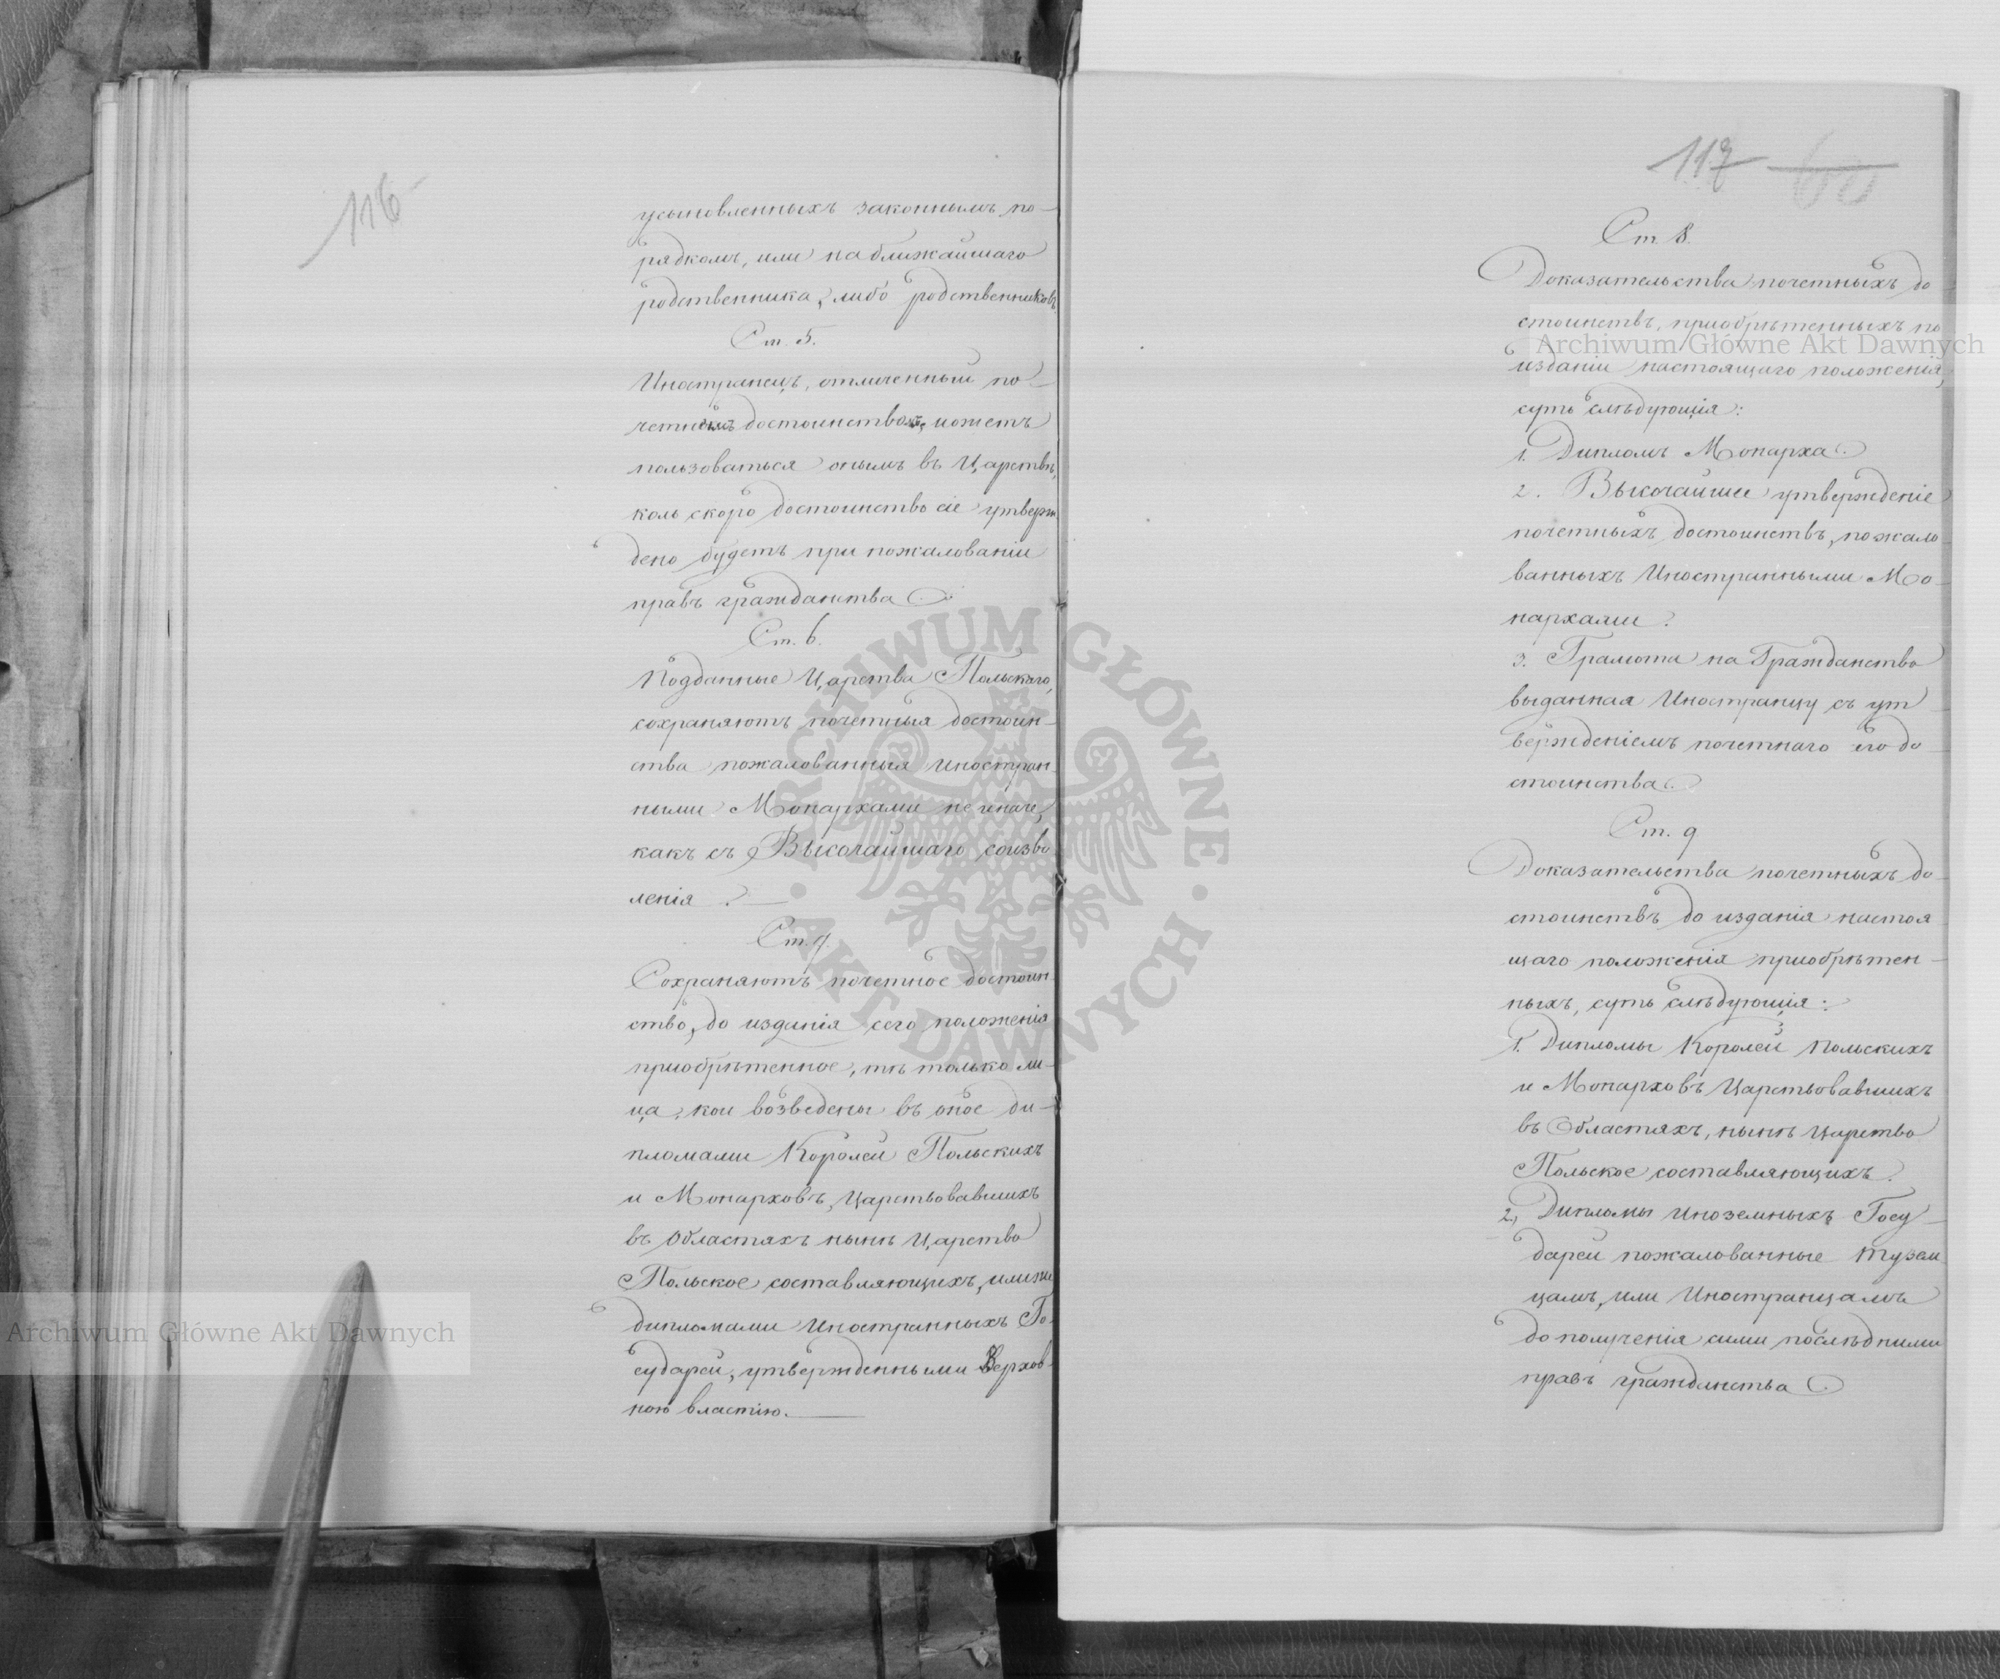 116
усыновленныхъ законнымъ по-
рядкомъ, или на ближайшаго
родственника, либо родственниковъ.
Ст. 5.
Иностранецъ, отличенный по-
четнымъ достоинствомъ, можетъ
пользоваться онымъ въ Царствѣ,
коль скоро достоинство сіе утверж-
дено будетъ при пожалованіи
правъ гражданства.
Ст. 6.
Подданные Царства Польскаго,
сохраняютъ почетныя достоин-
ства пожалованныя Иностран-
ными Монархами не иначе,
какъ съ Высочайшаго соизво-
ленія.
Ст. 7.
Сохраняютъ почетное достоин-
ство, до изданія сего положенія
приобрѣтенное, тѣ только ли-
ца, кои возведены въ оное ди-
пломами Королей Польскихъ
и Монарховъ, Царствовавшихъ
въ Областяхъ нынѣ Царство
Польское составляющихъ, или же
дипломами Иностранныхъ Го-
сударей, утвержденными Верхов-
ною властію.
117
Ст. 8.
Доказательства почетныхъ до-
стоинствъ, приобрѣтенныхъ по
изданіи настоящаго положенія,
суть слѣдующія:
1. Дипломъ Монарха.
2. Высочайшее утвержденіе
почетныхъ достоинствъ, пожало-
ванныхъ Иностранными Мо-
нархами.
3. Грамота на Гражданство
выданная Иностранцу съ ут-
вержденіемъ почетнаго его до-
стоинства.
Ст. 9
Доказательства почетныхъ до-
стоинствъ до изданія настоя
щаго положенія приобрѣтен-
ныхъ, суть слѣдующія:
1. Дипломы Королей Польскихъ
и Монарховъ Царствовавшихъ
въ Областяхъ, нынѣ Царство
Польское составляющихъ.
2, Дипломы Иноземныхъ Госу-
дарей пожалованные Тузем
цамъ, или Иностранцамъ
до полученія сими послѣдними
правъ гражданства
Archiwum Główne Akt Dawnych
Archiwum Główne Akt Dawnych
ARCHIWUM GŁÓWNE
AKT DAWNYCH